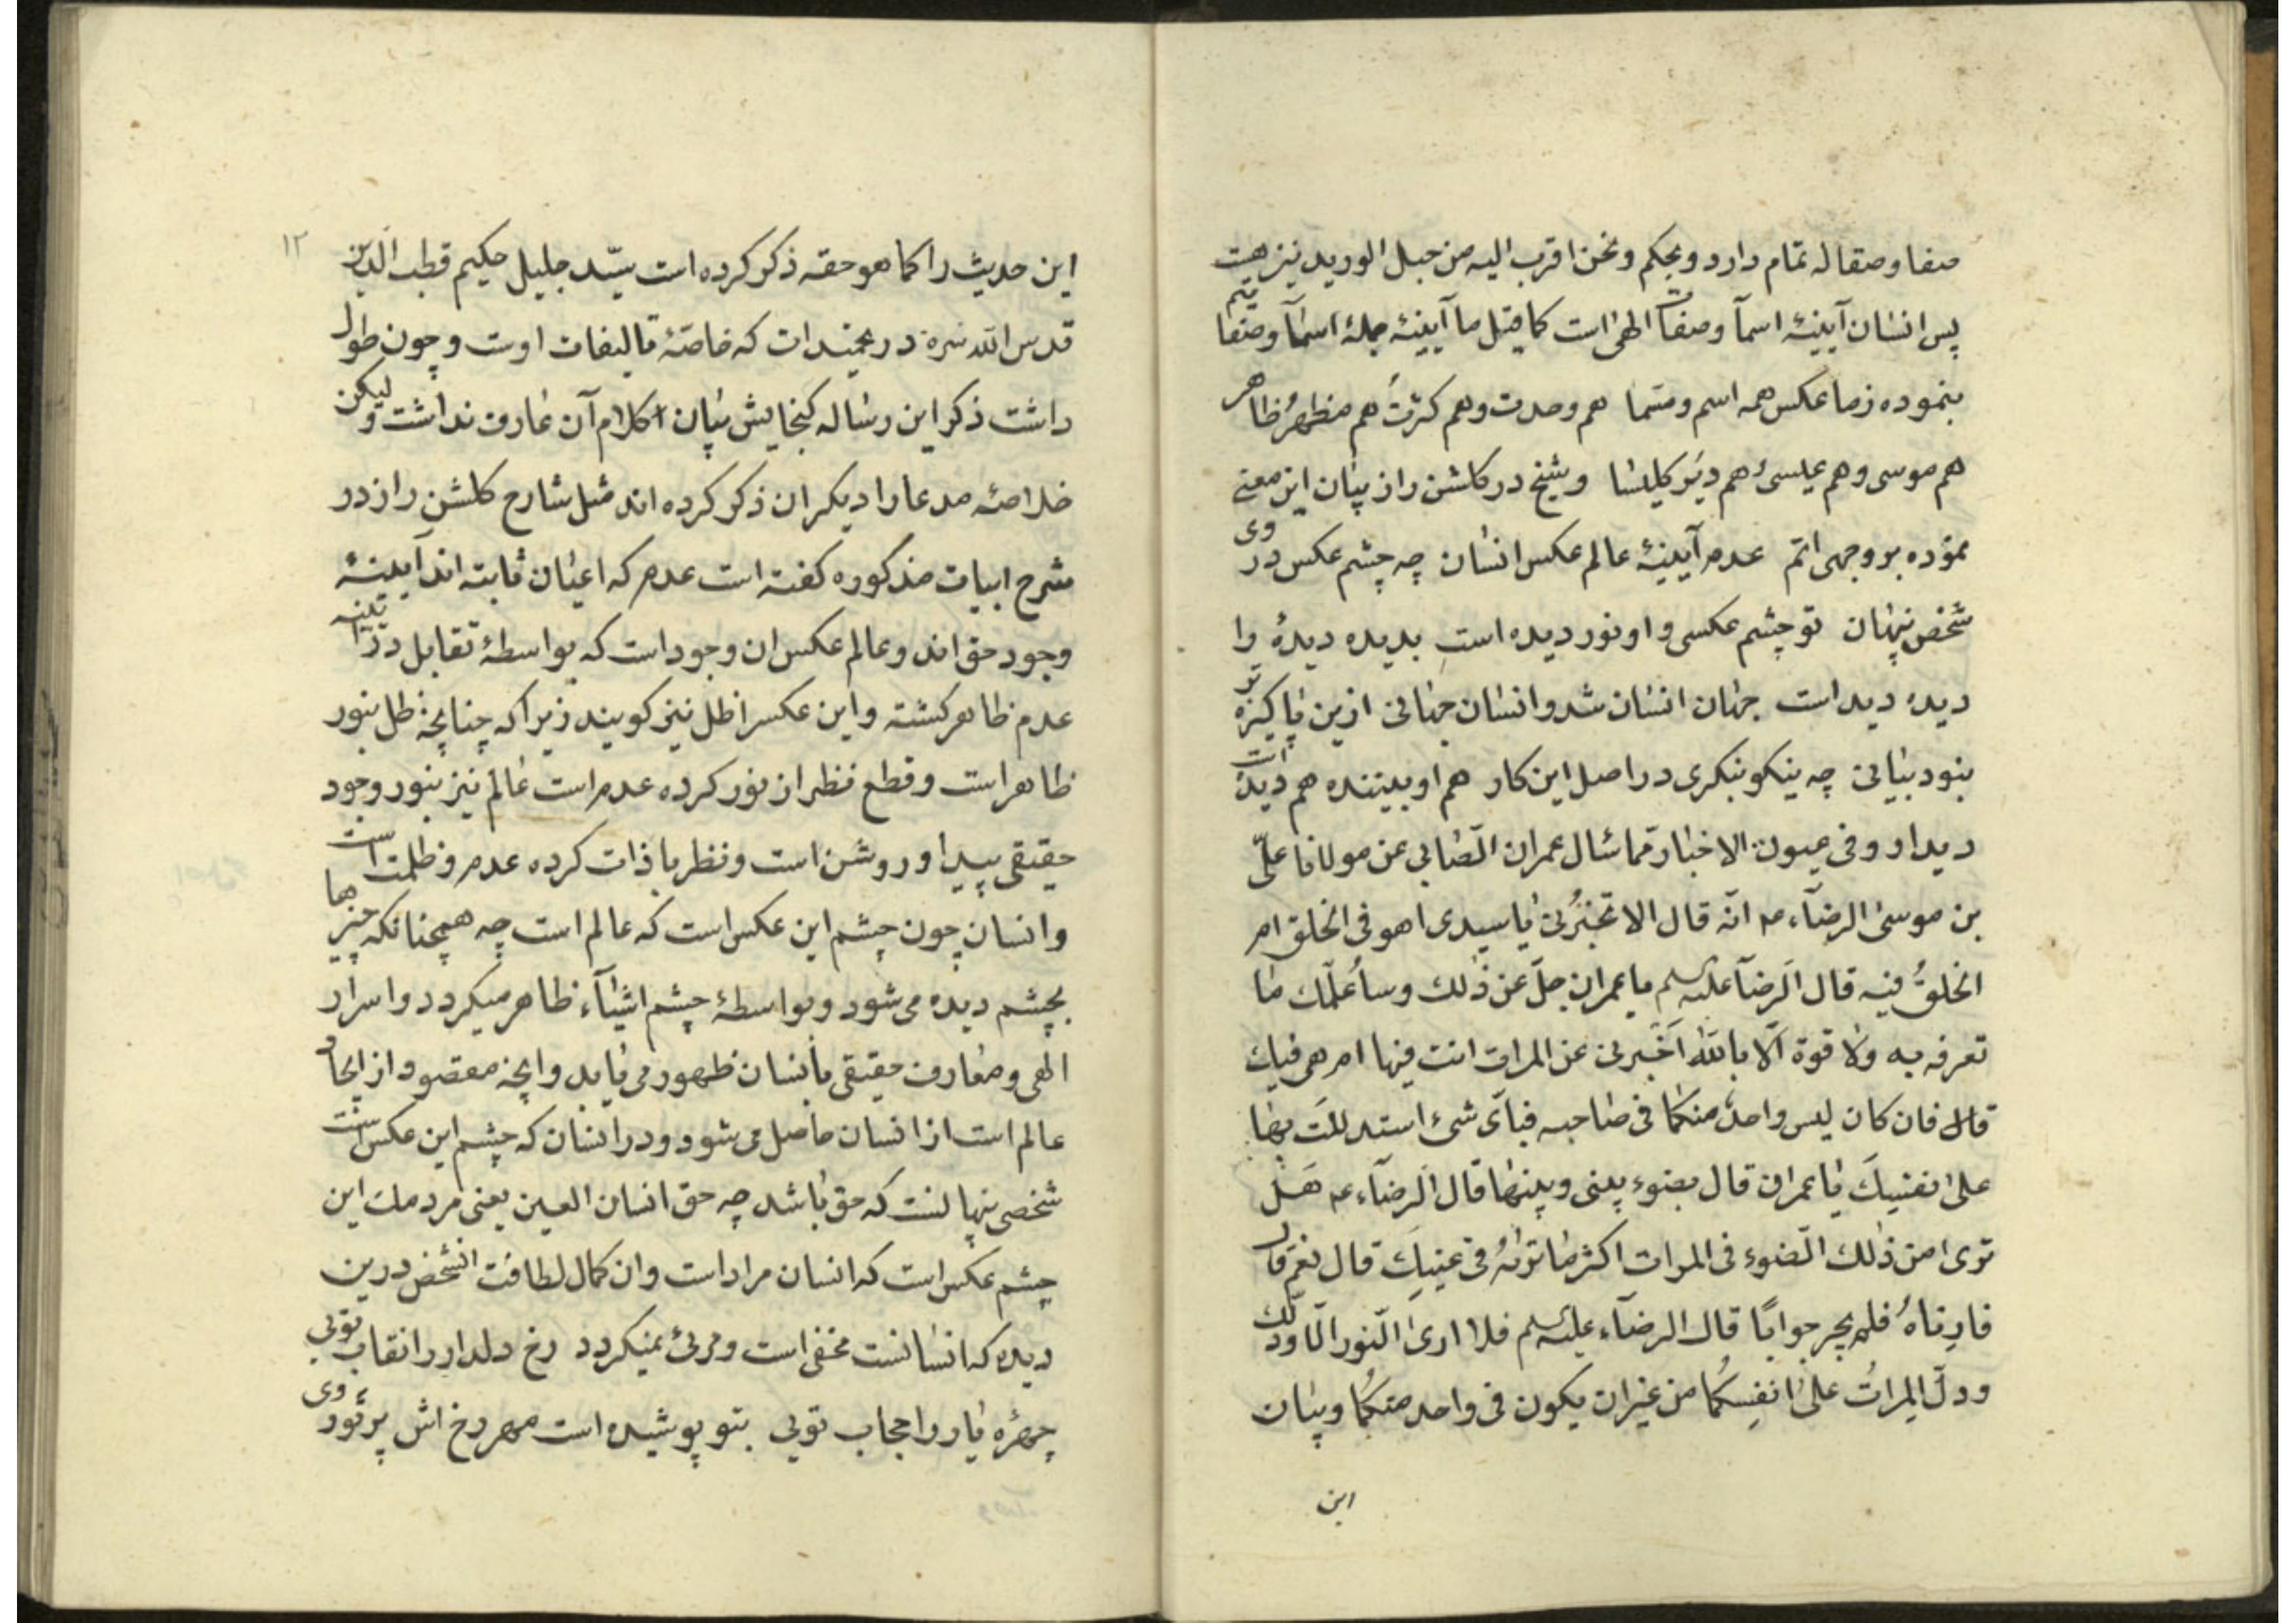 صفا و صقاله تمام دارد و بحکم و نحن اقرب الیه من حبل الورید نیز هست
پس انسان آیینهٔ اسمآ و صفات الهی است کما قیل ما آیینهٔ جملهٔ اسمآ و صفاتیم
بنموده ز ما عکس همه اسم و مسما هم وحدت و هم کثرت هم مظهر ظاهر
هم موسی و هم عیسی هم دیر کلیسا و شیخ در کلشن راز بیان این معنی
نموده بر وجهی اتم عدم آیینهٔ عالم عکس انسان چه چشم عکس در وی
شخص پنهان تو چشم عکسی و او نور دیده است بدیده دیدهٔ را
دیدهٔ دیده است جهان انسان شد و انسان جهانی ازین پاکیزه تر
بنود بیانی چه نیکو بنکری در اصل این کار هم او بیننده هم دیده است
دیدار و فی عیون الاخبار مما سٔال عمران الصّابی عن مولانا علیّ
بن موسی الرضآء عه انّه قال الا تخبرُنی یا سیدی اهو فی الخلق ام
الخلقُ فیه قال الرضآ علیه السلم یا عمران جلّ عن ذٰلک و ساُعلّمک ما
تعرفه به ولا قوة الّا باللّٰه اَخبرنی عن المرات انت فیها ام هی فیک
قال فان کان لیس واحدٌ منکما فی صاحبه فبایّ شیٔ استدللتَ بها
علی نفسِکَ یا عمران قال بضوء بینی و بینها قال الرضآء عه هَل
تری من ذٰلک الضوء فی المرات اکثر ما تراهُ فی عینِکَ قال نعم قال
فارِناهُ فلم یحر جوابًا قال الرضآء علیه السلم فلا اری النّور الّا و ذلک
و دلّ المراتُ علیٰ انفسِکُما من غیر ان یکون فی واحد منکُما و بیان
این
۱۲
این حدیث را کما هو حقه ذکر کرده است سیّد جلیل حکیم قطب الدین
قدس اللّه سره در کتابی که خاصّهٔ تالیفات اوست و چون طول
داشت ذکر این رساله کنجایش بیان کلام آن عارف نداشت و لیکن
خلاصهٔ مدعا را دیکران ذکر کرده اند مثل شارح کلشنِ راز در
شرح ابیات مذکوره کفته است عدم که اعیان ثابته اند آیینهٔ
وجود حق اند و عالم عکس ان وجود است که بواسطهٔ تقابل در آیینه
عدم ظاهر کشته و این عکس را ظل نیز کویند زیرا که چنانچه ظل بنور
ظاهر است و قطع نظر از نور کرده عدم است عالم نیز بنور وجود
حقیقی پیدا و روشن است و نظر با ذات کرده عدم و ظلمت است
و انسان چون چشم این عکس است که عالم است چه همچنانکه چیزها
بچشم دیده می شود و بواسطهٔ چشم اشیآء ظاهر میکردد و اسرار
الهی و معارف حقیقی بانسان ظهور می یابد و انچه مقصود از ایجاد
عالم است از انسان حاصل می شود و در انسان که چشم این عکس است
شخصی پنهانست که حق باشد چه حق انسان العین یعنی مردمک این
چشم عکس است که انسان مراد است و ان کمال لطافت انشخص درین
دیده که انسانست مخفی است و مرئی نمیکردد رخ دلدار را نقاب تویی
چهرهٔ یار را حجاب تویی بتو پوشیده است مهر رخ اش